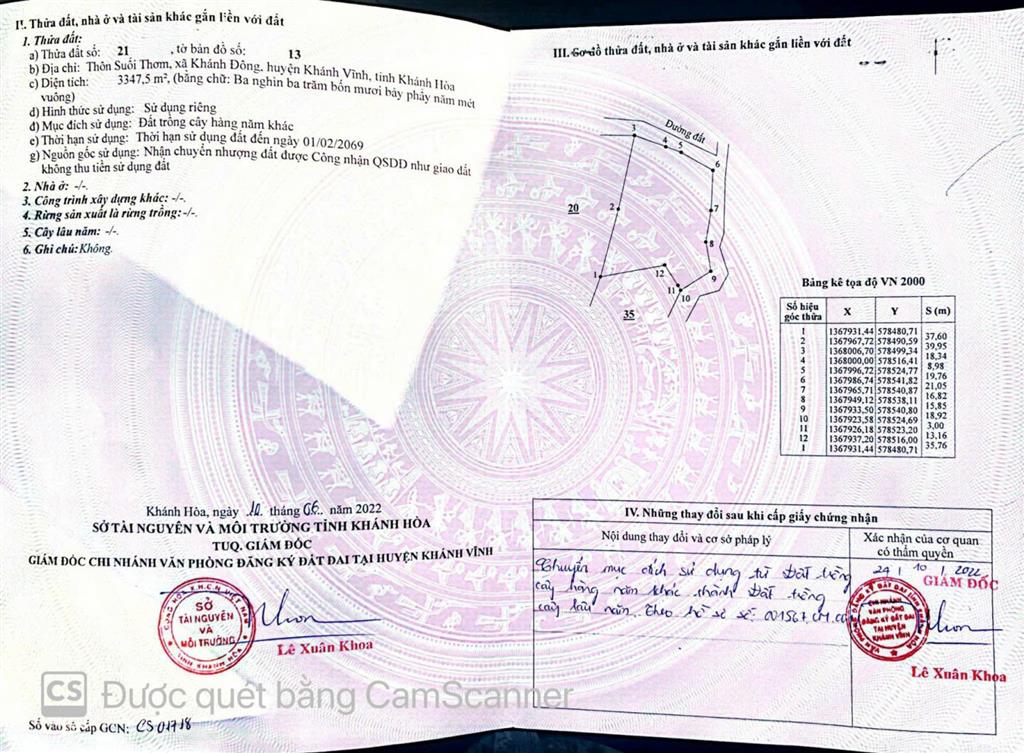 II. Thửa đất, nhà ở và tài sản khác gắn liền với đất
1. Thửa đất:
a) Thửa đất số: 21 , tờ bản đồ số: 13
b) Địa chỉ: Thôn Suối Thơm, xã Khánh Đông, huyện Khánh Vĩnh, tỉnh Khánh Hòa
c) Diện tích: 3347,5 m², (bằng chữ: Ba nghìn ba trăm bốn mươi bảy phẩy năm mét
vuông)
d) Hình thức sử dụng: Sử dụng riêng
đ) Mục đích sử dụng: Đất trồng cây hàng năm khác
e) Thời hạn sử dụng: Thời hạn sử dụng đất đến ngày 01/02/2069
g) Nguồn gốc sử dụng: Nhận chuyển nhượng đất được Công nhận QSDĐ như giao đất
không thu tiền sử dụng đất
2. Nhà ở: -/-.
3. Công trình xây dựng khác: -/-.
4. Rừng sản xuất là rừng trồng:-/-.
5. Cây lâu năm: -/-.
6. Ghi chú:Không.
Khánh Hòa, ngày 10 tháng năm 2022
SỞ TÀI NGUYÊN VÀ MÔI TRƯỜNG TỈNH KHÁNH HÒA
TUQ. GIÁM ĐỐC
GIÁM ĐỐC CHI NHÁNH VĂN PHÒNG ĐĂNG KÝ ĐẤT ĐAI TẠI HUYỆN KHÁNH VĨNH
CỘNG HÒA X.H.C.N VIỆT NAM
SỞ
TÀI NGUYÊN
VÀ
MÔI TRƯỜNG
TỈNH KHÁNH HÒA
Lê Xuân Khoa
CS Được quét bằng CamScanner
Số vào sổ cấp GCN: CS01718
III. Sơ đồ thửa đất, nhà ở và tài sản khác gắn liền với đất
Đường đất
3
4
5
6
20
2
7
8
1
12
9
11
10
35
Bảng kê tọa độ VN 2000
Số hiệu góc thửa X Y S (m)
1 1367931,44 578480,71
37,60
2 1367967,72 578490,59
39,95
3 1368006,70 578499,34
18,34
4 1368000,00 578516,41
8,98
5 1367996,72 578524,77
19,76
6 1367986,74 578541,82
21,05
7 1367965,71 578540,87
16,82
8 1367949,12 578538,11
15,85
9 1367933,50 578540,80
18,92
10 1367923,58 578524,69
3,00
11 1367926,18 578523,20
13,16
12 1367937,20 578516,00
35,76
1 1367931,44 578480,71
IV. Những thay đổi sau khi cấp giấy chứng nhận
Nội dung thay đổi và cơ sở pháp lý
Xác nhận của cơ quan
có thẩm quyền
Chuyển mục đích sử dụng từ Đất trồng
cây hàng năm khác thành Đất trồng
cây lâu năm. Theo hồ sơ số: 001567.CM.
24 / 10 / 2022
GIÁM ĐỐC
CHI NHÁNH
VĂN PHÒNG
ĐĂNG KÝ ĐẤT ĐAI
TẠI HUYỆN
KHÁNH VĨNH
Lê Xuân Khoa